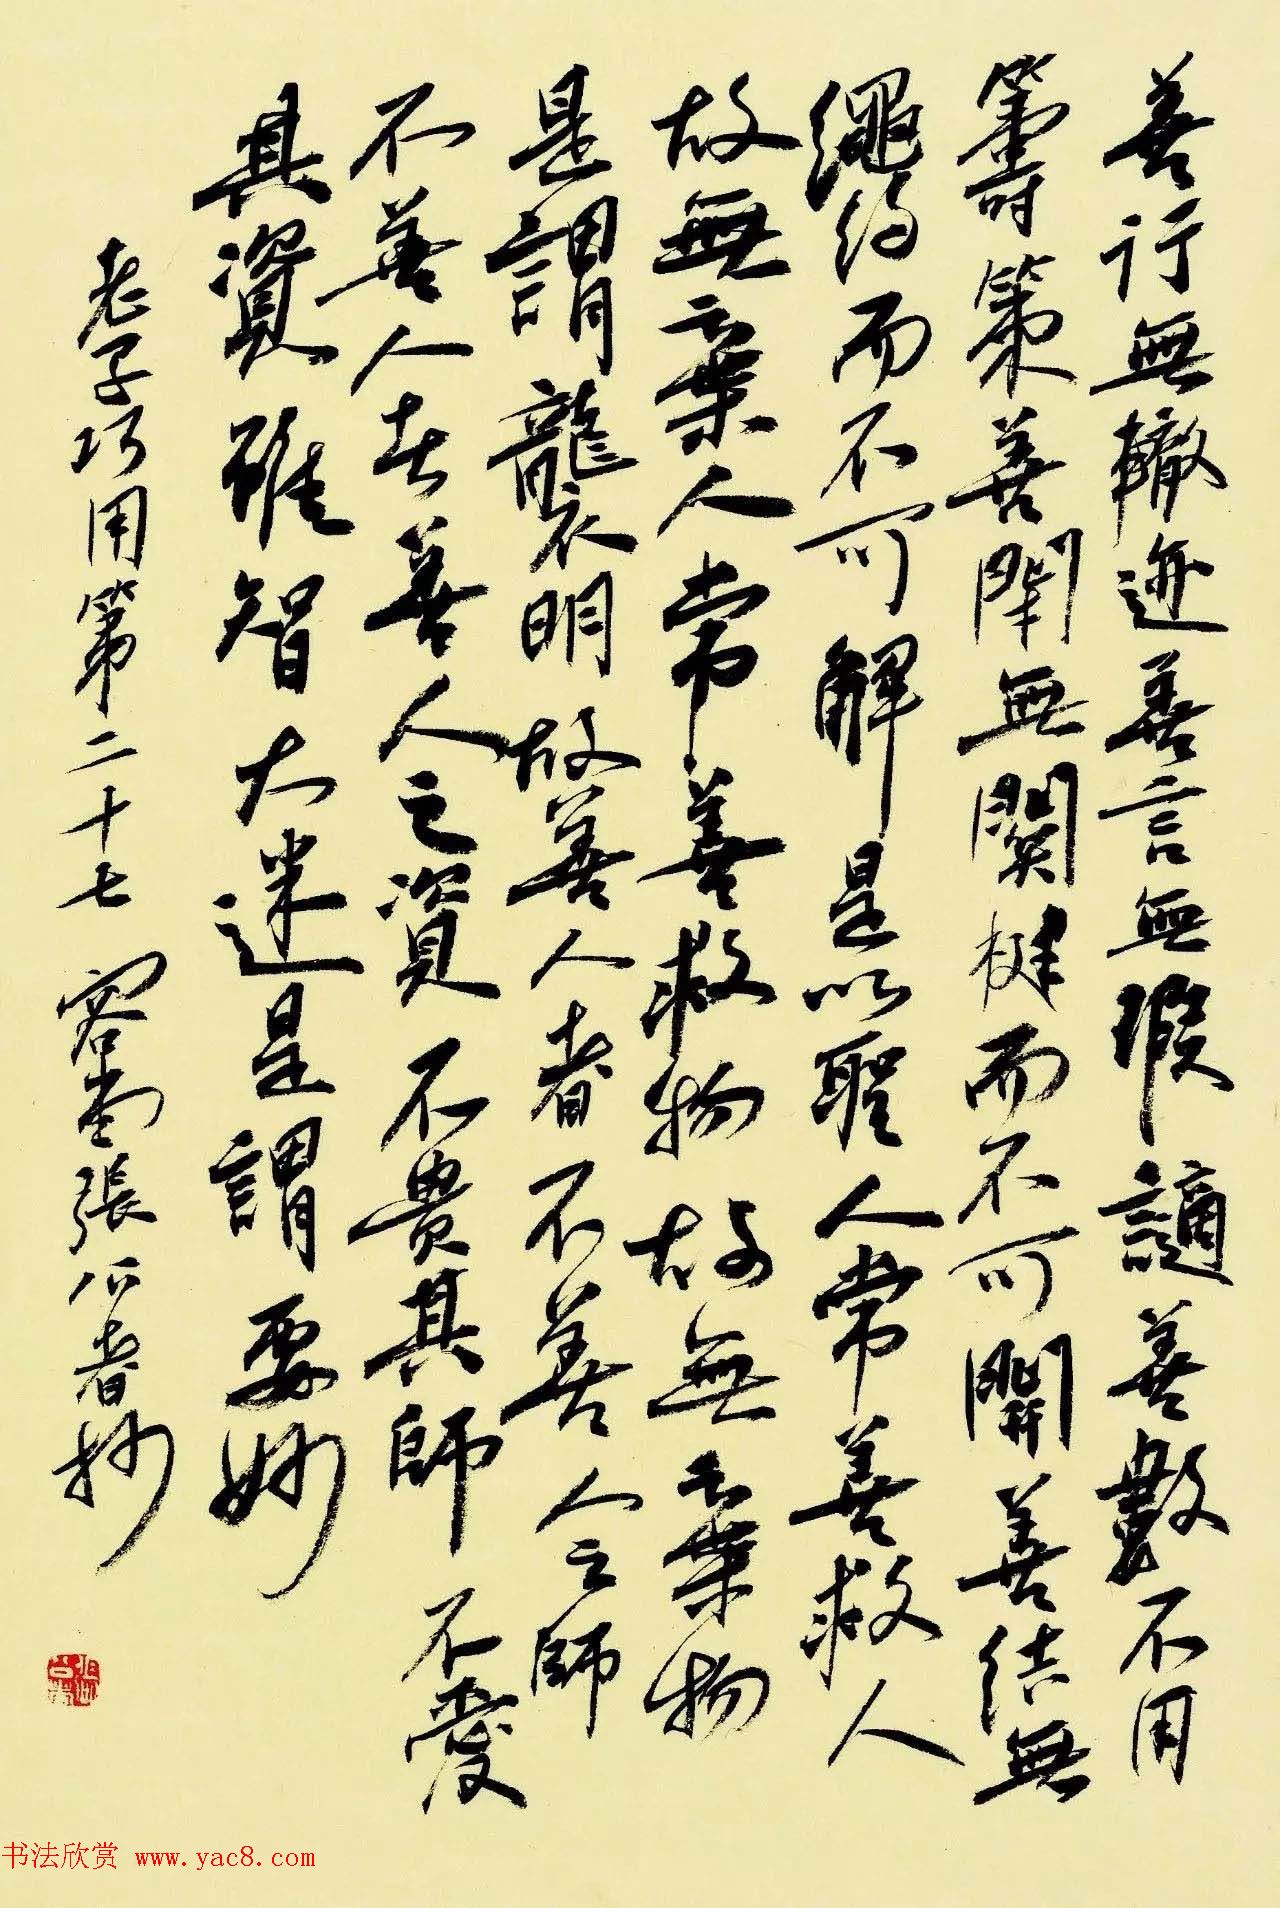 善行無轍迹善言無瑕讁善數不用
籌策善閉無關楗而不可開善結無
繩約而不可解是以聖人常善救人
故無棄人常善救物故無棄物
是謂襲明故善人者不善人之師
不善人者善人之資不貴其師不愛
其資雖智大迷是謂要妙
老子巧用第二十七 容堂張公者抄
书法欣赏 www.yac8.com